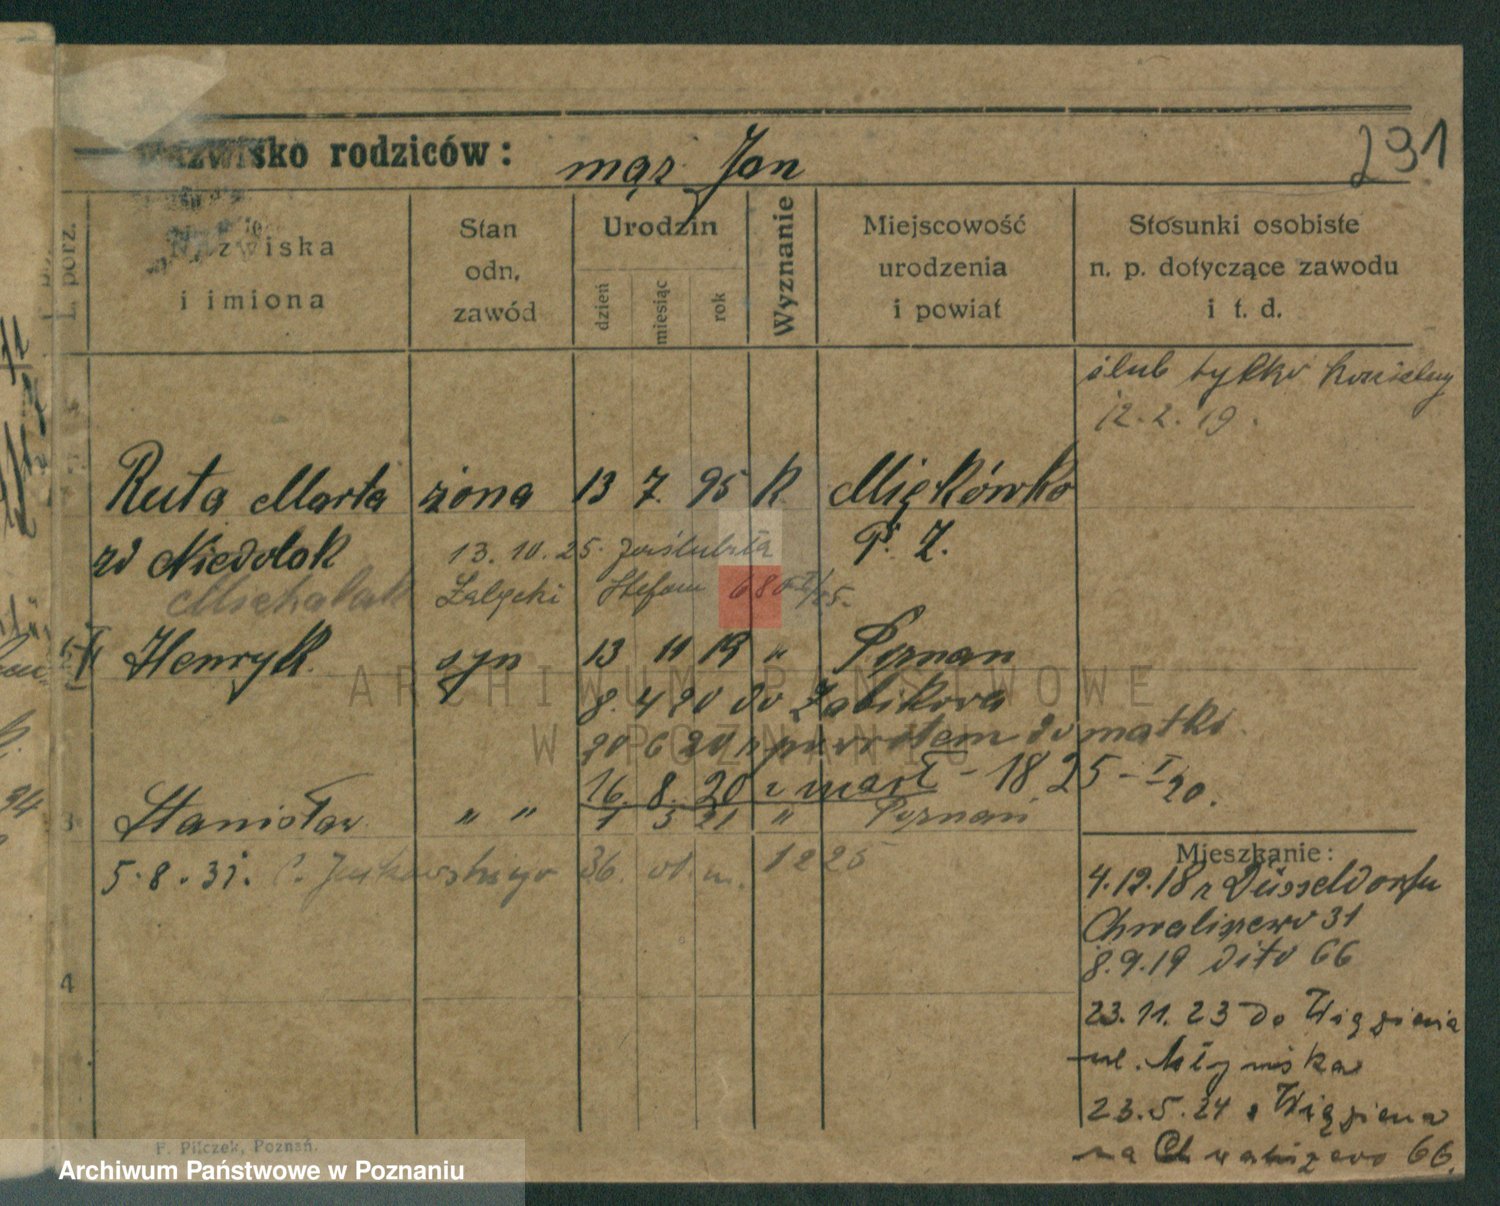 Nazwisko rodziców: mąż Jan
291
L. porz.
Nazwiska i imiona
Stan odn. zawód
Urodzin
dzień
miesiąc
rok
Wyznanie
Miejscowość urodzenia i powiat
Stosunki osobiste n. p. dotyczące zawodu i t. d.
ślub tylko kościelny
12.2.19.
Ruta Marta żona 13 7. 95 K. Miękówko
zd Niedolok P. Z.
13.10.25. zaślubiła
Michalak
Zalycki Stefan 680
Henryk syn 13 11 19 " Poznań
8. 4 20 do Żabikova
20 6 20 z powrotem do matki.
16. 8. 20 zmarł - 18 25 - I 20.
3 Stanisław " " 1 3 21 " Poznań
5.8.31. 36. 1225
4
Mieszkanie:
4.12.18 z Düsseldorfu
Chwaliszewo 31
8.9.19 dito 66
23.11.23 do Więzienia
ul. Młyńska
23.5.24 z Więzienia
na Chwaliszewo 66.
F. Pilczek, Poznań.
ARCHIWUM PAŃSTWOWE
W POZNANIU
Archiwum Państwowe w Poznaniu